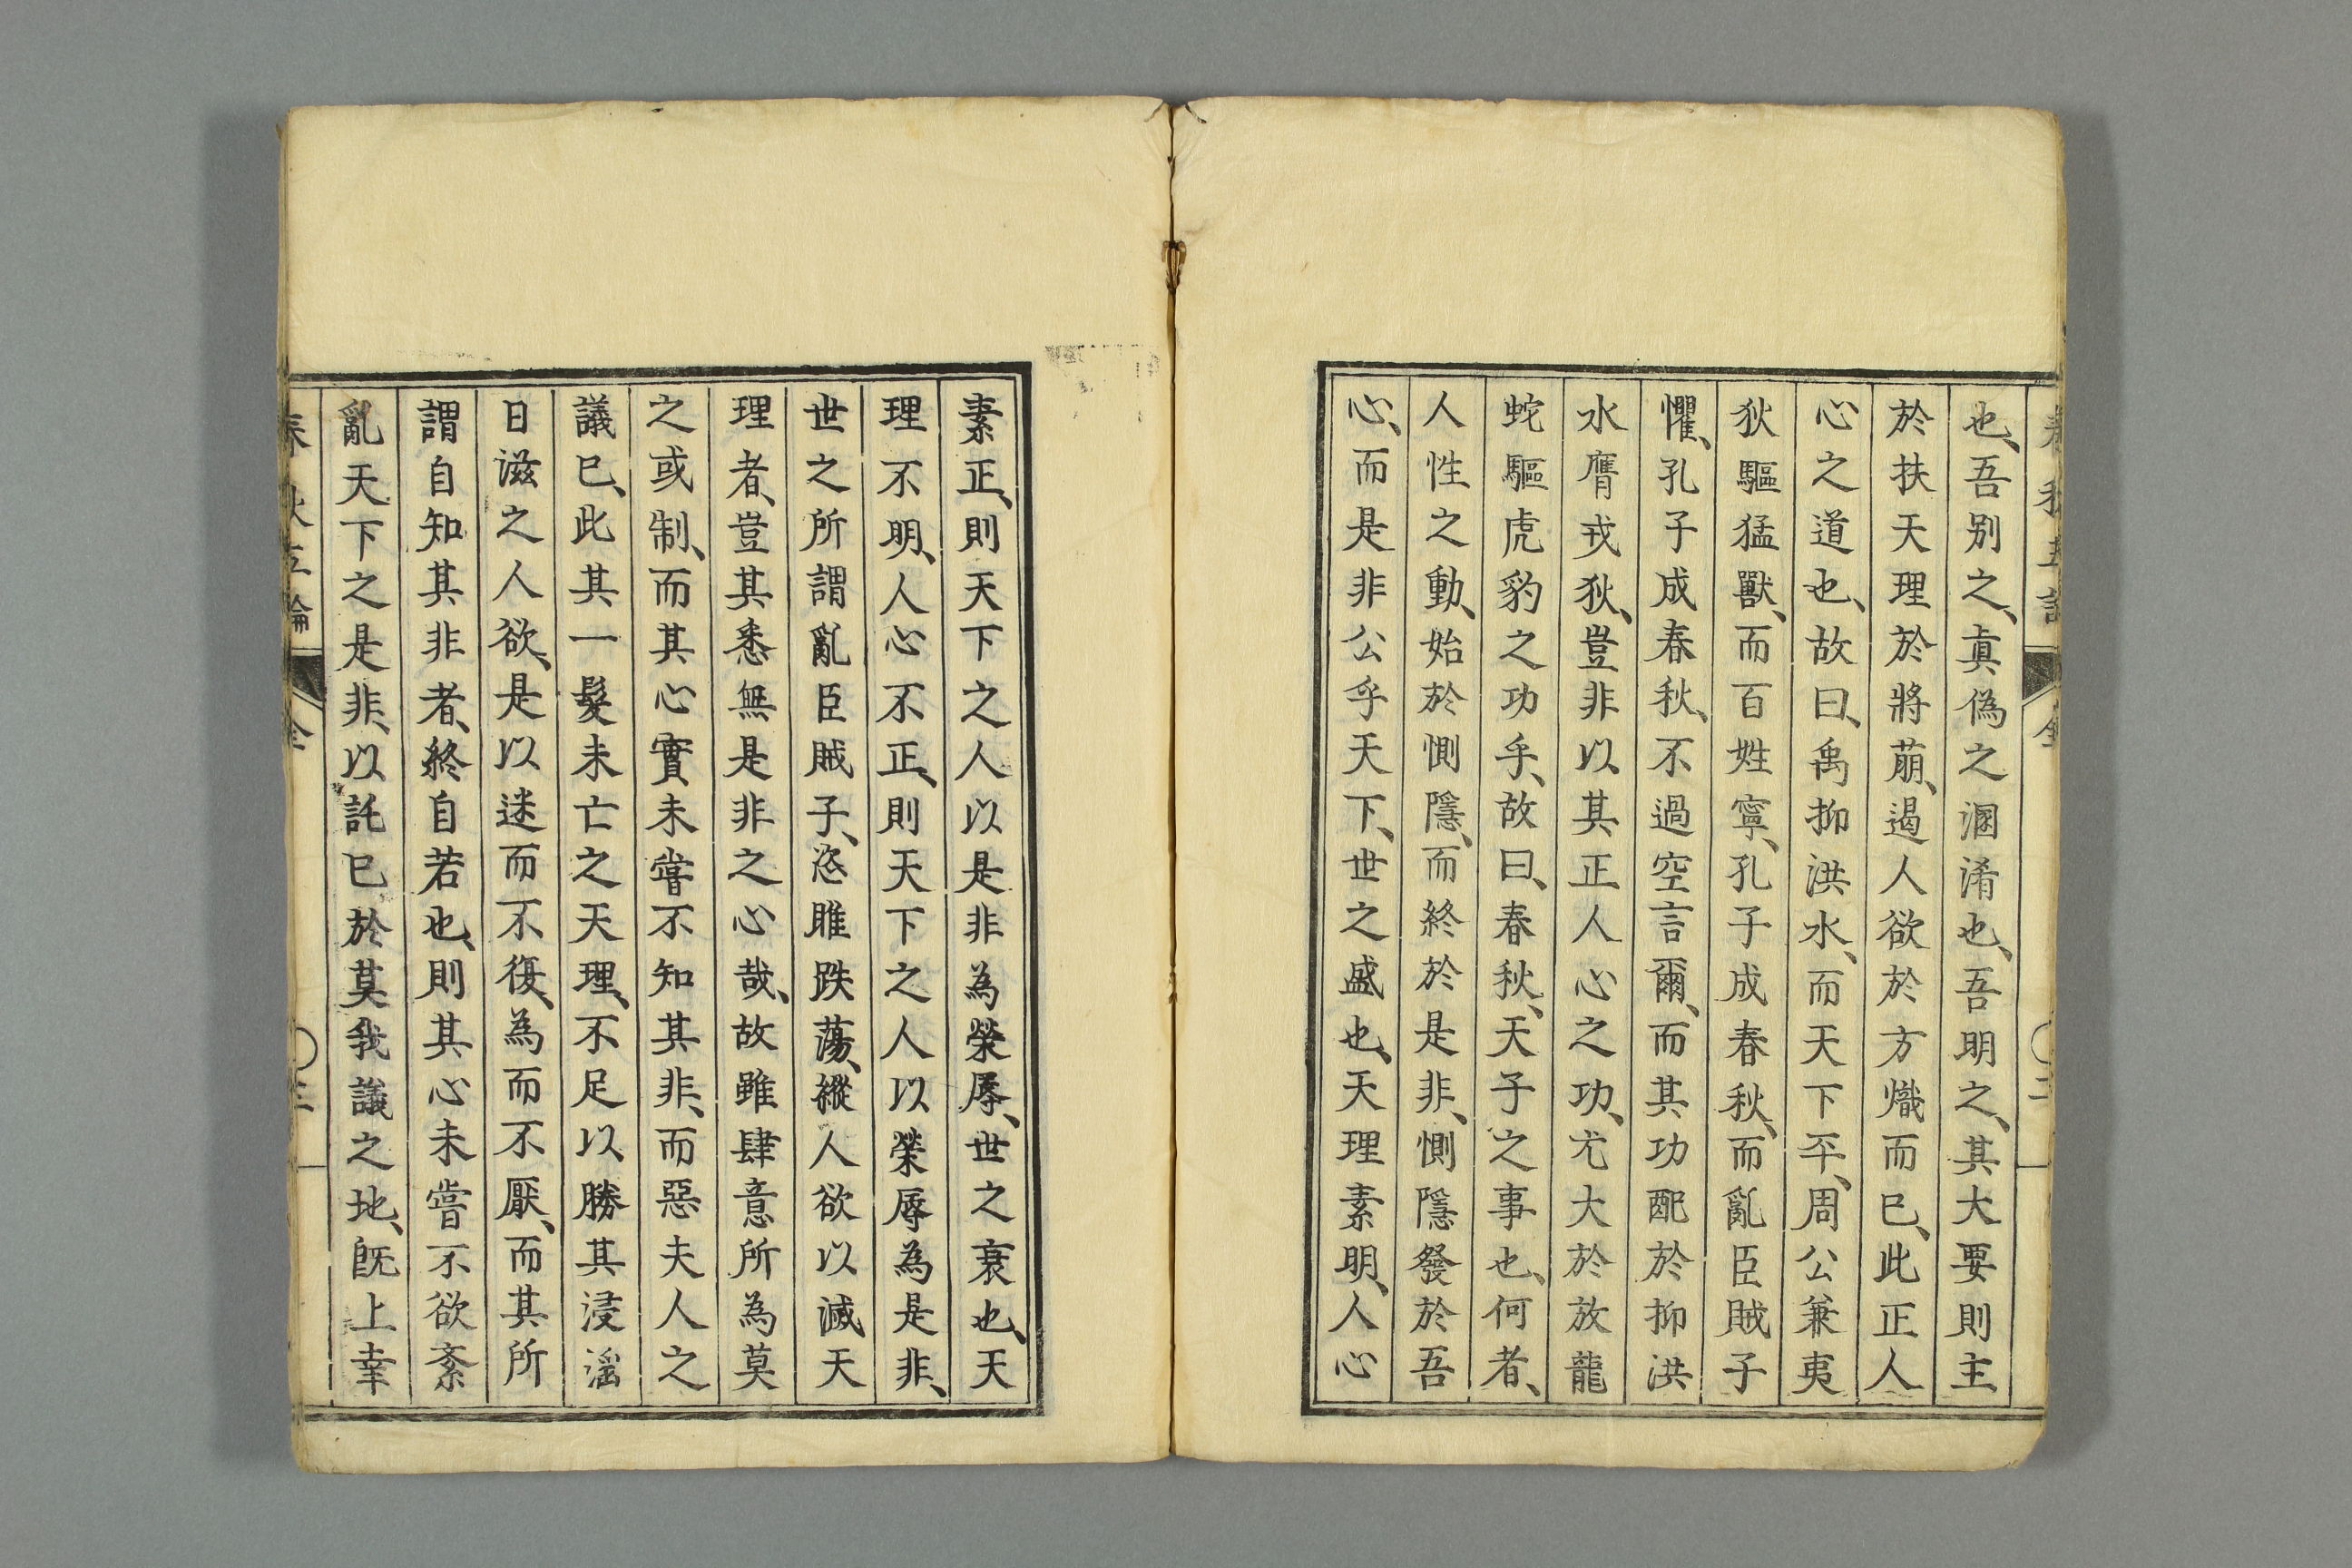 也、吾别之、真偽之溷淆也、吾明之、其大要則主
於扶天理於將萠、遏人欲於方熾而已、此正人
心之道也、故曰、禹抑洪水、而天下平、周公兼夷
狄驅猛獸、而百姓寧、孔子成春秋、而亂臣賊子
懼、孔子成春秋、不過空言爾、而其功配於抑洪
水膺戎狄、豈非以其正人心之功、尤大於放龍
蛇驅虎豹之功乎、故曰、春秋、天子之事也、何者、
人性之動、始於惻隱、而終於是非、惻隱發於吾
心、而是非公乎天下、世之盛也、天理素明、人心
素正、則天下之人以是非為榮辱、世之衰也、天
理不明、人心不正、則天下之人以榮辱為是非、
世之所謂亂臣賊子、恣睢跌蕩、縱人欲以滅天
理者、豈其悉無是非之心哉、故雖肆意所為莫
之或制、而其心實未嘗不知其非、而惡夫人之
議已、此其一髮未亡之天理、不足以勝其浸滛
日滋之人欲、是以迷而不復、為而不厭、而其所
謂自知其非者、終自若也、則其心未嘗不欲紊
亂天下之是非、以託已於莫我議之地、既上幸
春秋五論 全 三